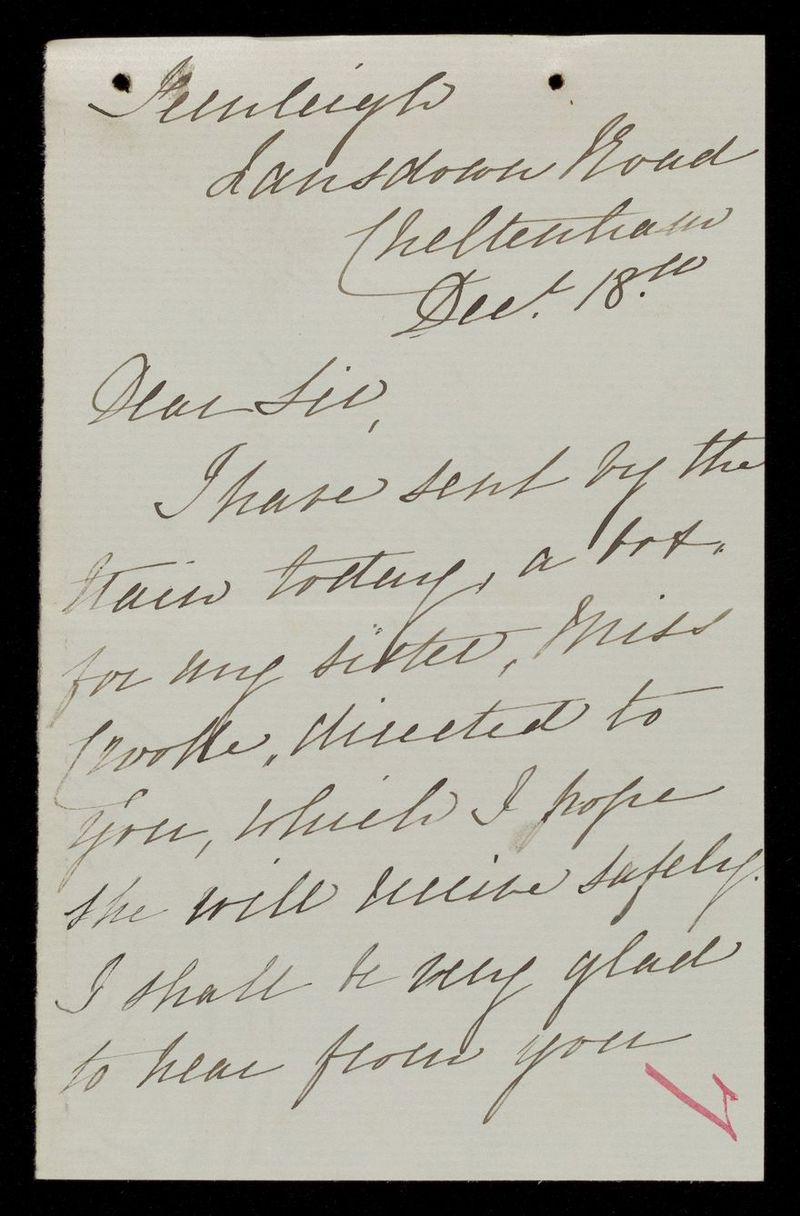 Fernleigh
Lansdown Road
Cheltenham
Decr. 18th
Dear Sir,
I have sent by the
train today, a box
for my sister, Miss
directed to
you, which I hope
she will receive safely.
I shall be very glad
to hear from you